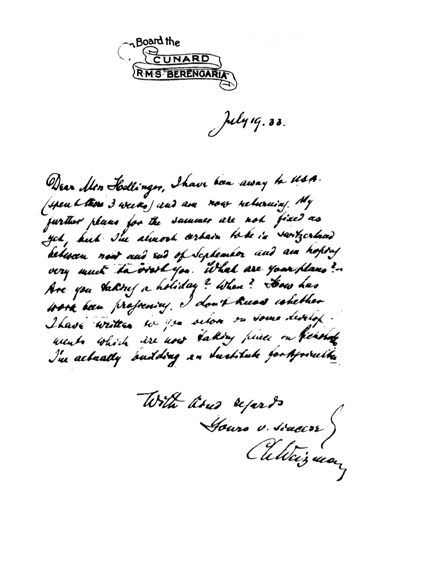 On Board the
CUNARD
RMS "BERENGARIA"
July 19. 33.
Dear Miss Hollinger, I have been away to USA
(spent there 3 weeks) and am now returning. My
further plans for the summer are not fixed as
yet, but I'm almost certain to be in Switzerland
between now and end of September and am hoping
very much to you. What are your plans? -
Are you taking a holiday? When? How has
work been progressing. I don't know whether
I have written to you on some develop-
ments which are now taking place in
I'm actually building an Institute for
With kind regards
Yours v. sincerely
Ch Weizmann